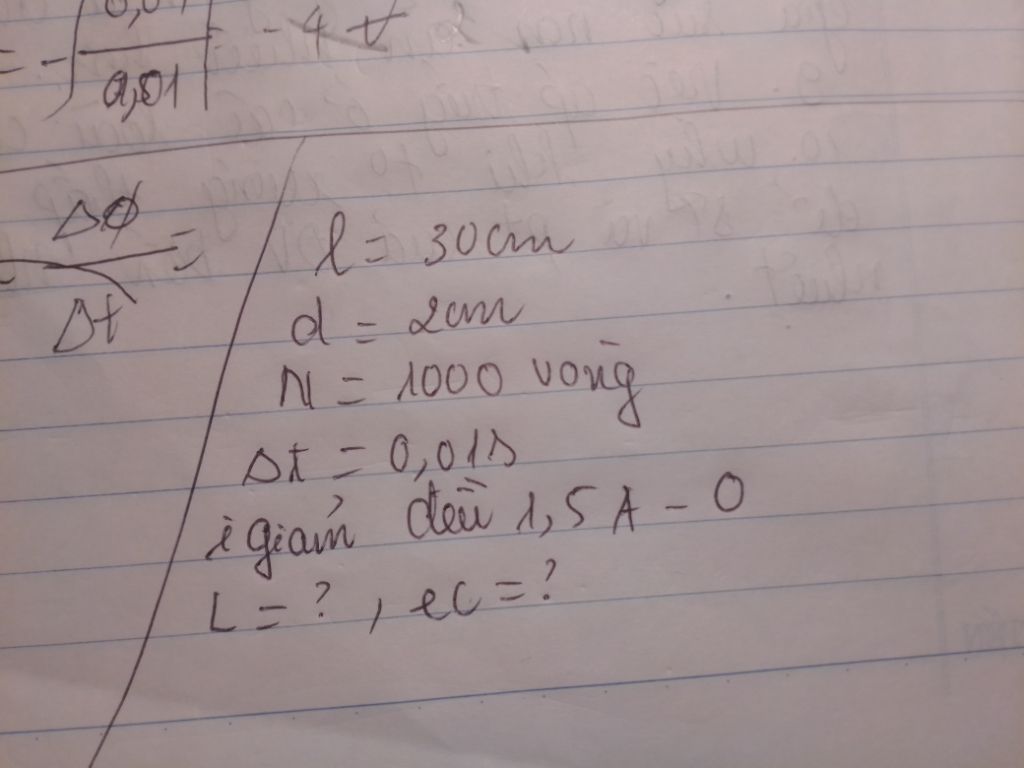 = - | 0,01 / 0,01 | = - 4 V
ΔΦ / Δt =
l = 30cm
d = 2cm
N = 1000 vòng
Δt = 0,01s
i giảm đều 1,5A - 0
L = ?, ec = ?